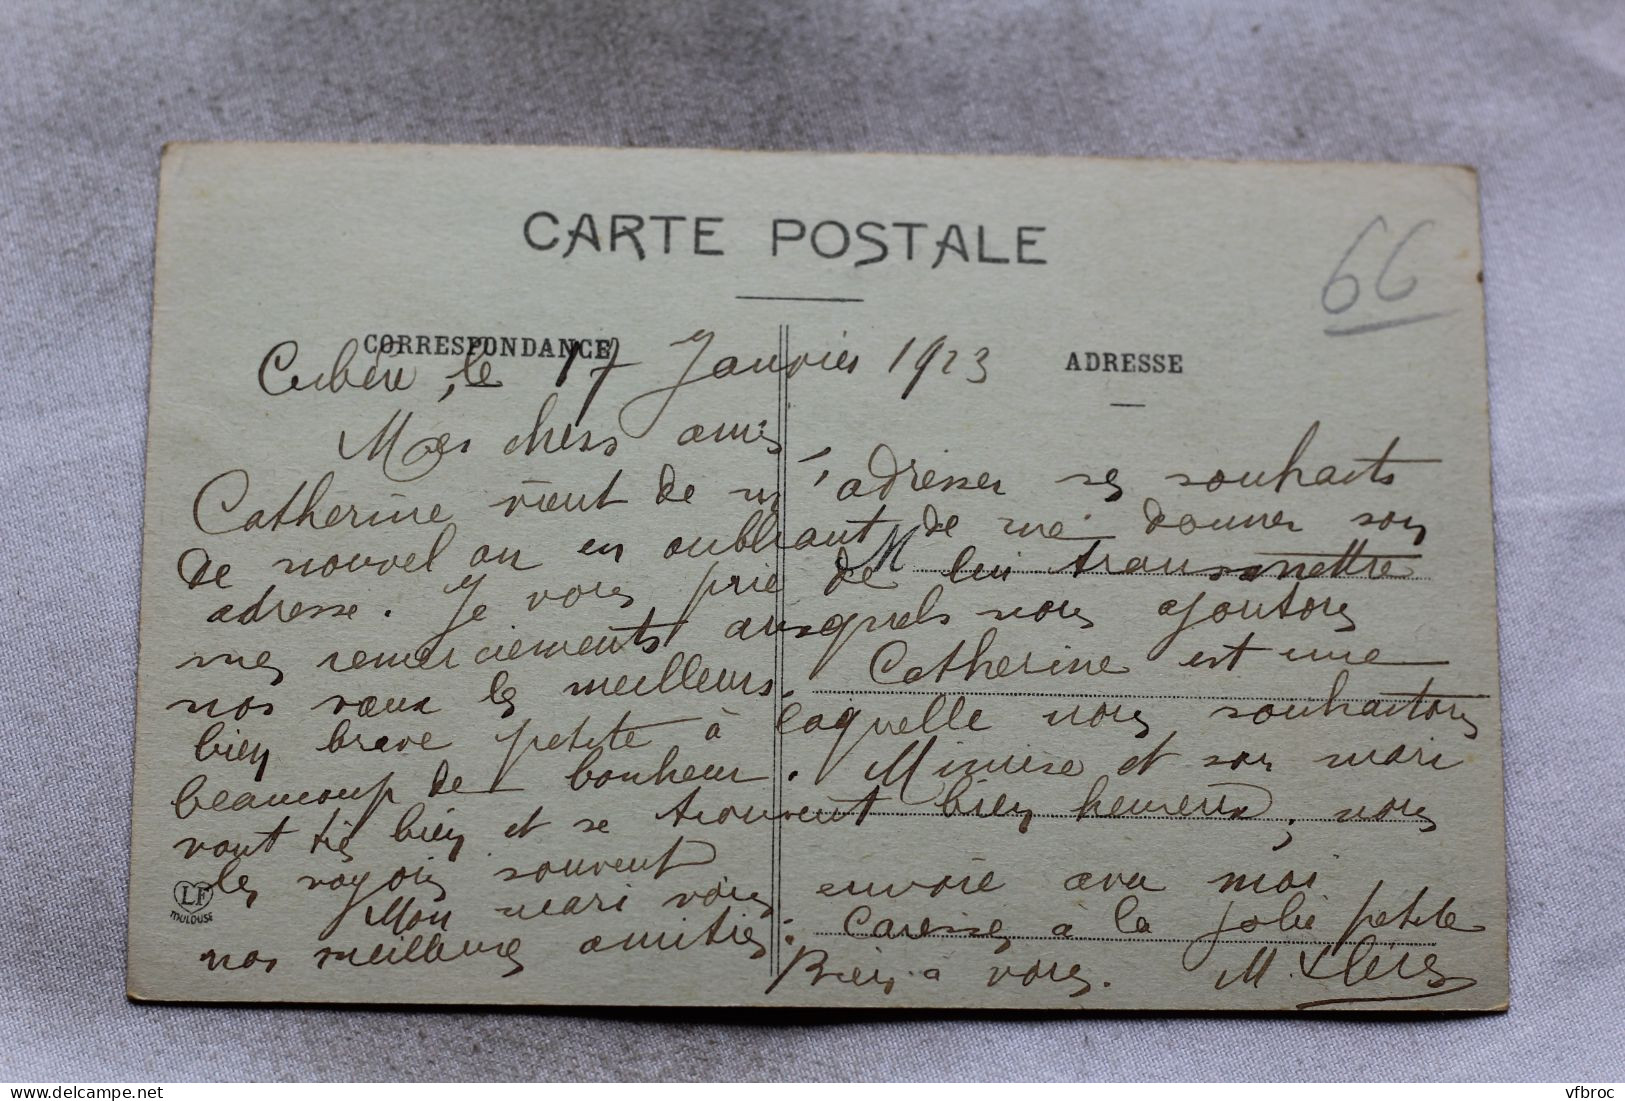 CARTE POSTALE
66
CORRESPONDANCE
ADRESSE
Cerbère, le 17 Janvier 1923
Mes chers amis
Catherine vient de m'adresser ses souhaits
de nouvel an en oubliant de me donner son
adresse. Je vous prie de lui transmettre
M
mes remerciements auxquels nous ajoutons
nos vœux les meilleurs. Catherine est une
bien brave petite à laquelle nous souhaitons
beaucoup de bonheur. et son mari
vont très bien et se trouvent bien heureux, nous
les voyons souvent
Mon mari vous envoie avec moi
nos meilleures amitiés. Caresses à la jolie petite
Bien à vous. M.
LF
TOULOUSE
vfbroc